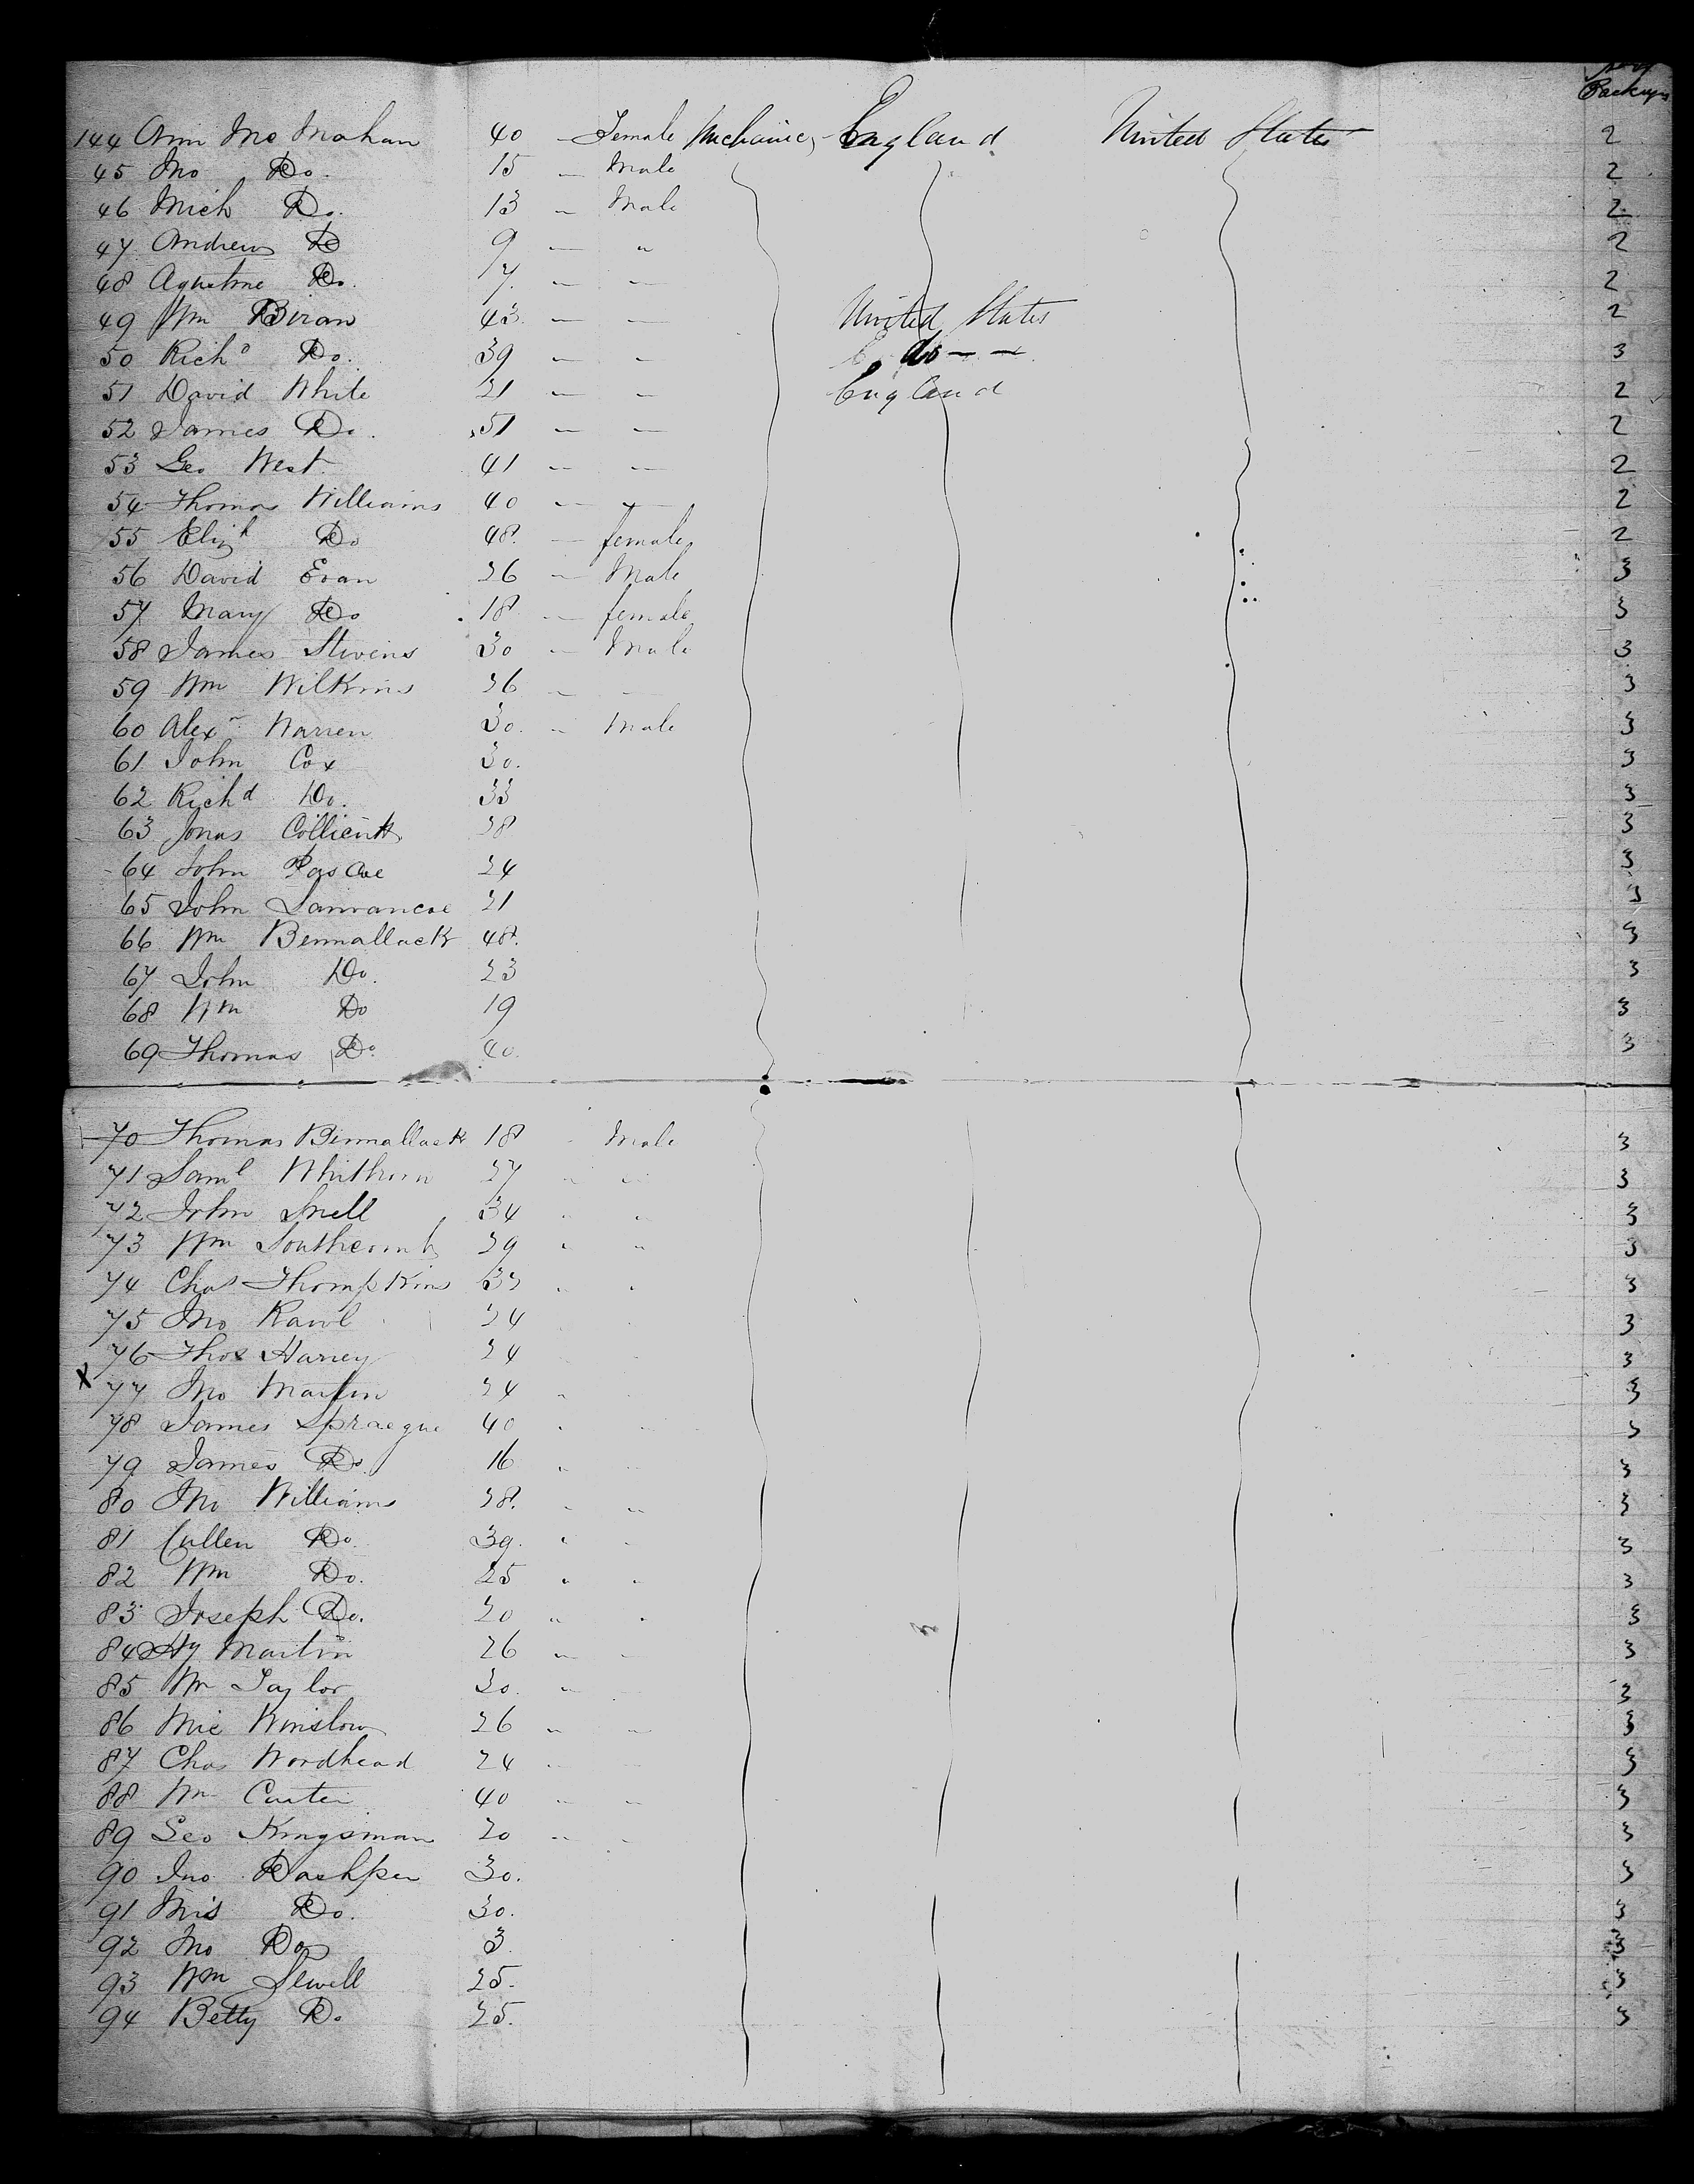 Packages
144 Ann McMahan 40 — Female Mechanic England United States 2
45 Jno Do. 15 — Male 2
46 Mich Do. 13 — Male 2
47 Andrew Do 9 — " 2
48 Agustine Do. 7. — — 2
49 Wm Biran 43. — — United States 2
50 Richd Do. 39 — — do — — 3
51 David White 21 — — England 2
52 James Do. 51 — — 2
53 Geo West 41 — — 2
54 Thomas Williams 40 — — 2
55 Elizh Do 48. — female 2
56 David Evan 26 — Male 3
57 Mary Do 18 — female 3
58 James Stivens 30 — Male 3
59 Wm Wilkins 26 — — 3
60 Alexr Warren 30. — Male 3
61 John Cox 30. 3
62 Richd Do. 33 3
63 Jonas 28 3
64 John Pascoe 24 3
65 John 21 3
66 Wm Bennallack 48. 3
67 John Do. 23 3
68 Wm Do 19 3
69 Thomas Do. 40. 3
70 Thomas Binnallack 18 - Male 3
71 Saml Whithorn 27 " " 3
72 John Snell 34 " " 3
73 Wm Southcomb 29 " " 3
74 Chas Thompkins 32 " " 3
75 Jno Rawl 24 3
76 Thos Harvey 24 3
X 77 Jno Martin 24 " 3
78 James Spraegue 40 " " 3
79 James Do 16 " " 3
80 Jno Williams 28. " " 3
81 Cullen Do. 39. " " 3
82 Wm Do. 25 " " 3
83 Joseph Do. 20 " " 3
84 Hy Martin 26 " " 3
85 Wm Taylor 30. " " 3
86 Mic Winslow 26 " " 3
87 Chas Woodhead 24 " " 3
88 Wm Carter 40 " " 3
89 Geo Kingsman 20 " " 3
90 Jno Dashper 30. 3
91 Mrs Do. 30. 3
92 Jno Do 3. 3
93 Wm Sewell 25. 3
94 Betty Do 25. 3